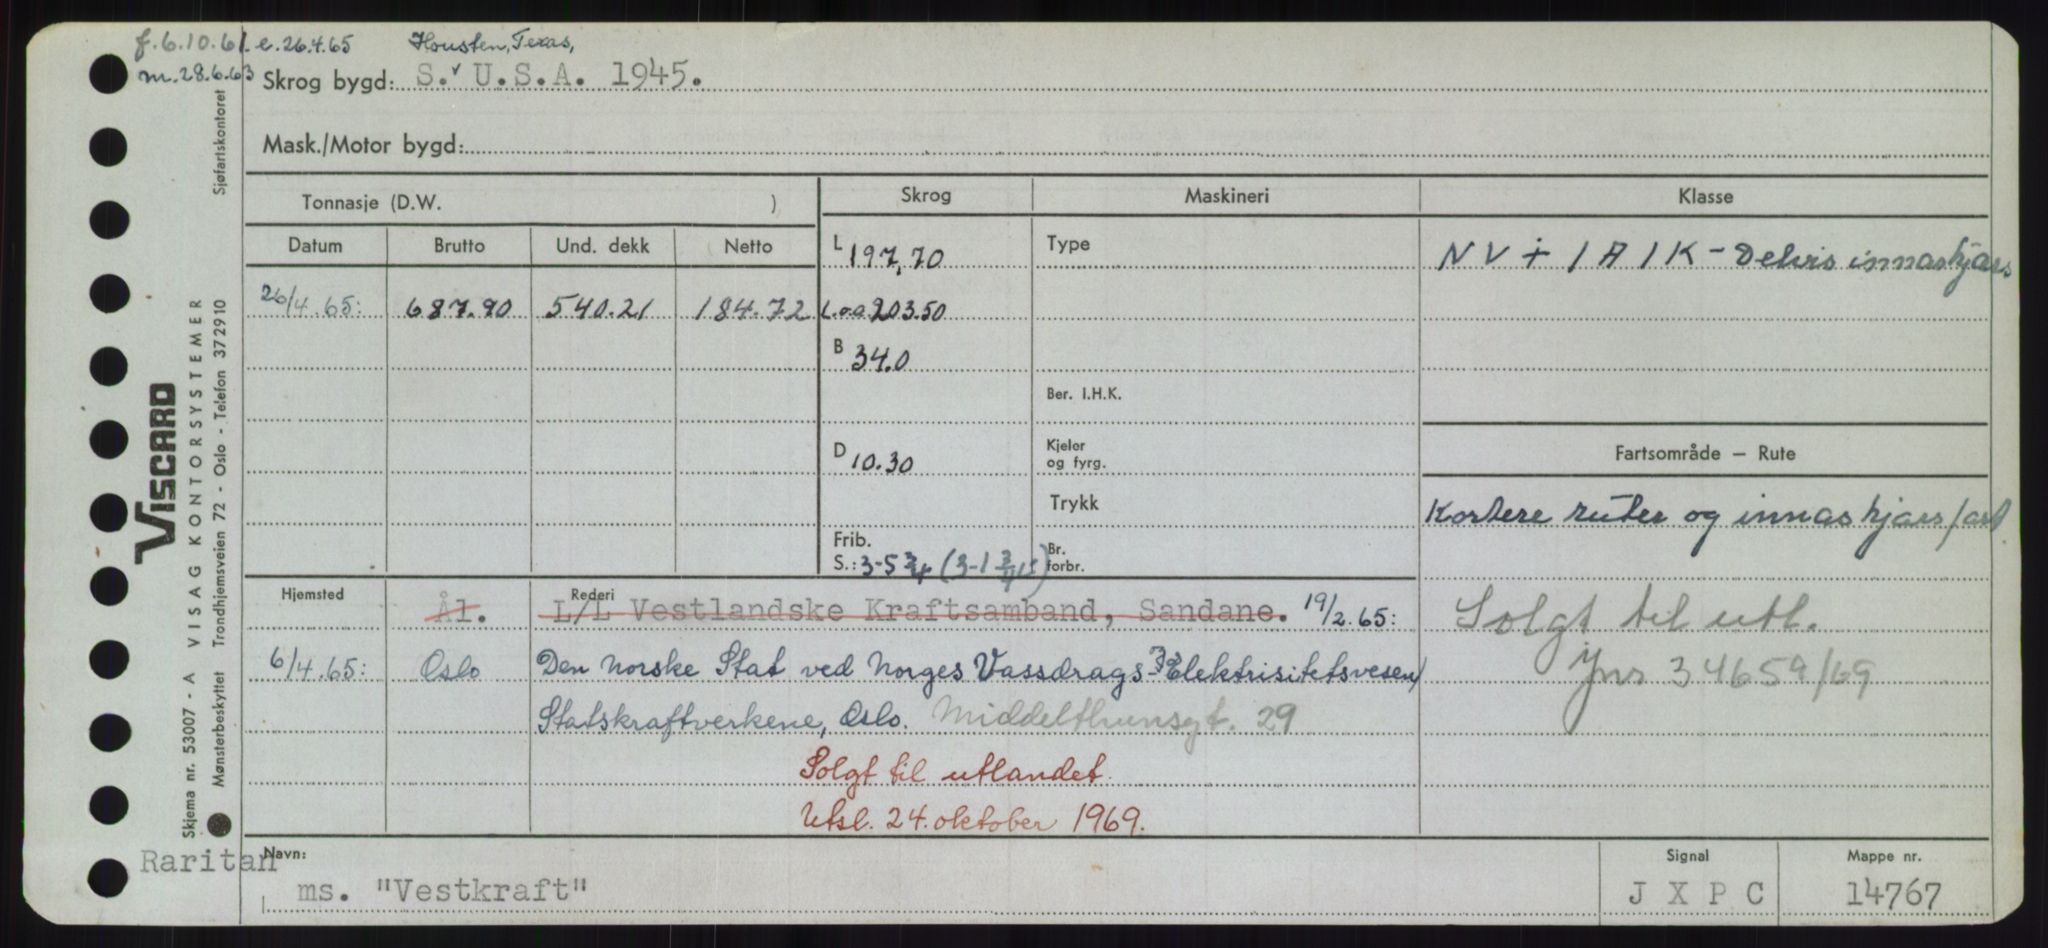 f.6.10.61. e.26.4.65
m.28.6.63
Housten, Texas,
Skrog bygd: S. U.S.A. 1945.
Mask./Motor bygd:
Tonnasje (D.W. )
Skrog
Maskineri
Klasse
Datum Brutto Und. dekk Netto
26/4.65: 687.90 540.21 184.72
L 197,70
L.o.a. 203.50
B 34.0
D 10.30
Frib.
S.: 3-5 3/4 (3-1 3/4
Type
Ber. I.H.K.
Kjeler
og fyrg.
Trykk
Br.
forbr.
NV + 1 A 1 K - Delvis innaskjærs
Fartsområde – Rute
Kortere ruter og innaskjærs fart
Solgt til utl.
Jnr 34659/69
Hjemsted
Rederi
Ål. L/L Vestlandske Kraftsamband, Sandane. 19/2.65:
6/4.65: Oslo Den Norske Stat ved Norges Vassdrags- Elektrisitetsvesen/
Statskraftverkene, Oslo. Middelthunsgt. 29
Solgt til utlandet.
Utsl. 24. oktober 1969.
Raritan
Navn:
ms. "Vestkraft"
Signal
J X P C
Mappe nr.
14767
VISCARD
Skjema nr. 53007 - A VISAG KONTORSYSTEMER
Mønsterbeskyttet Trondhjemsveien 72 - Oslo - Telefon 372910 Sjøfartskontoret